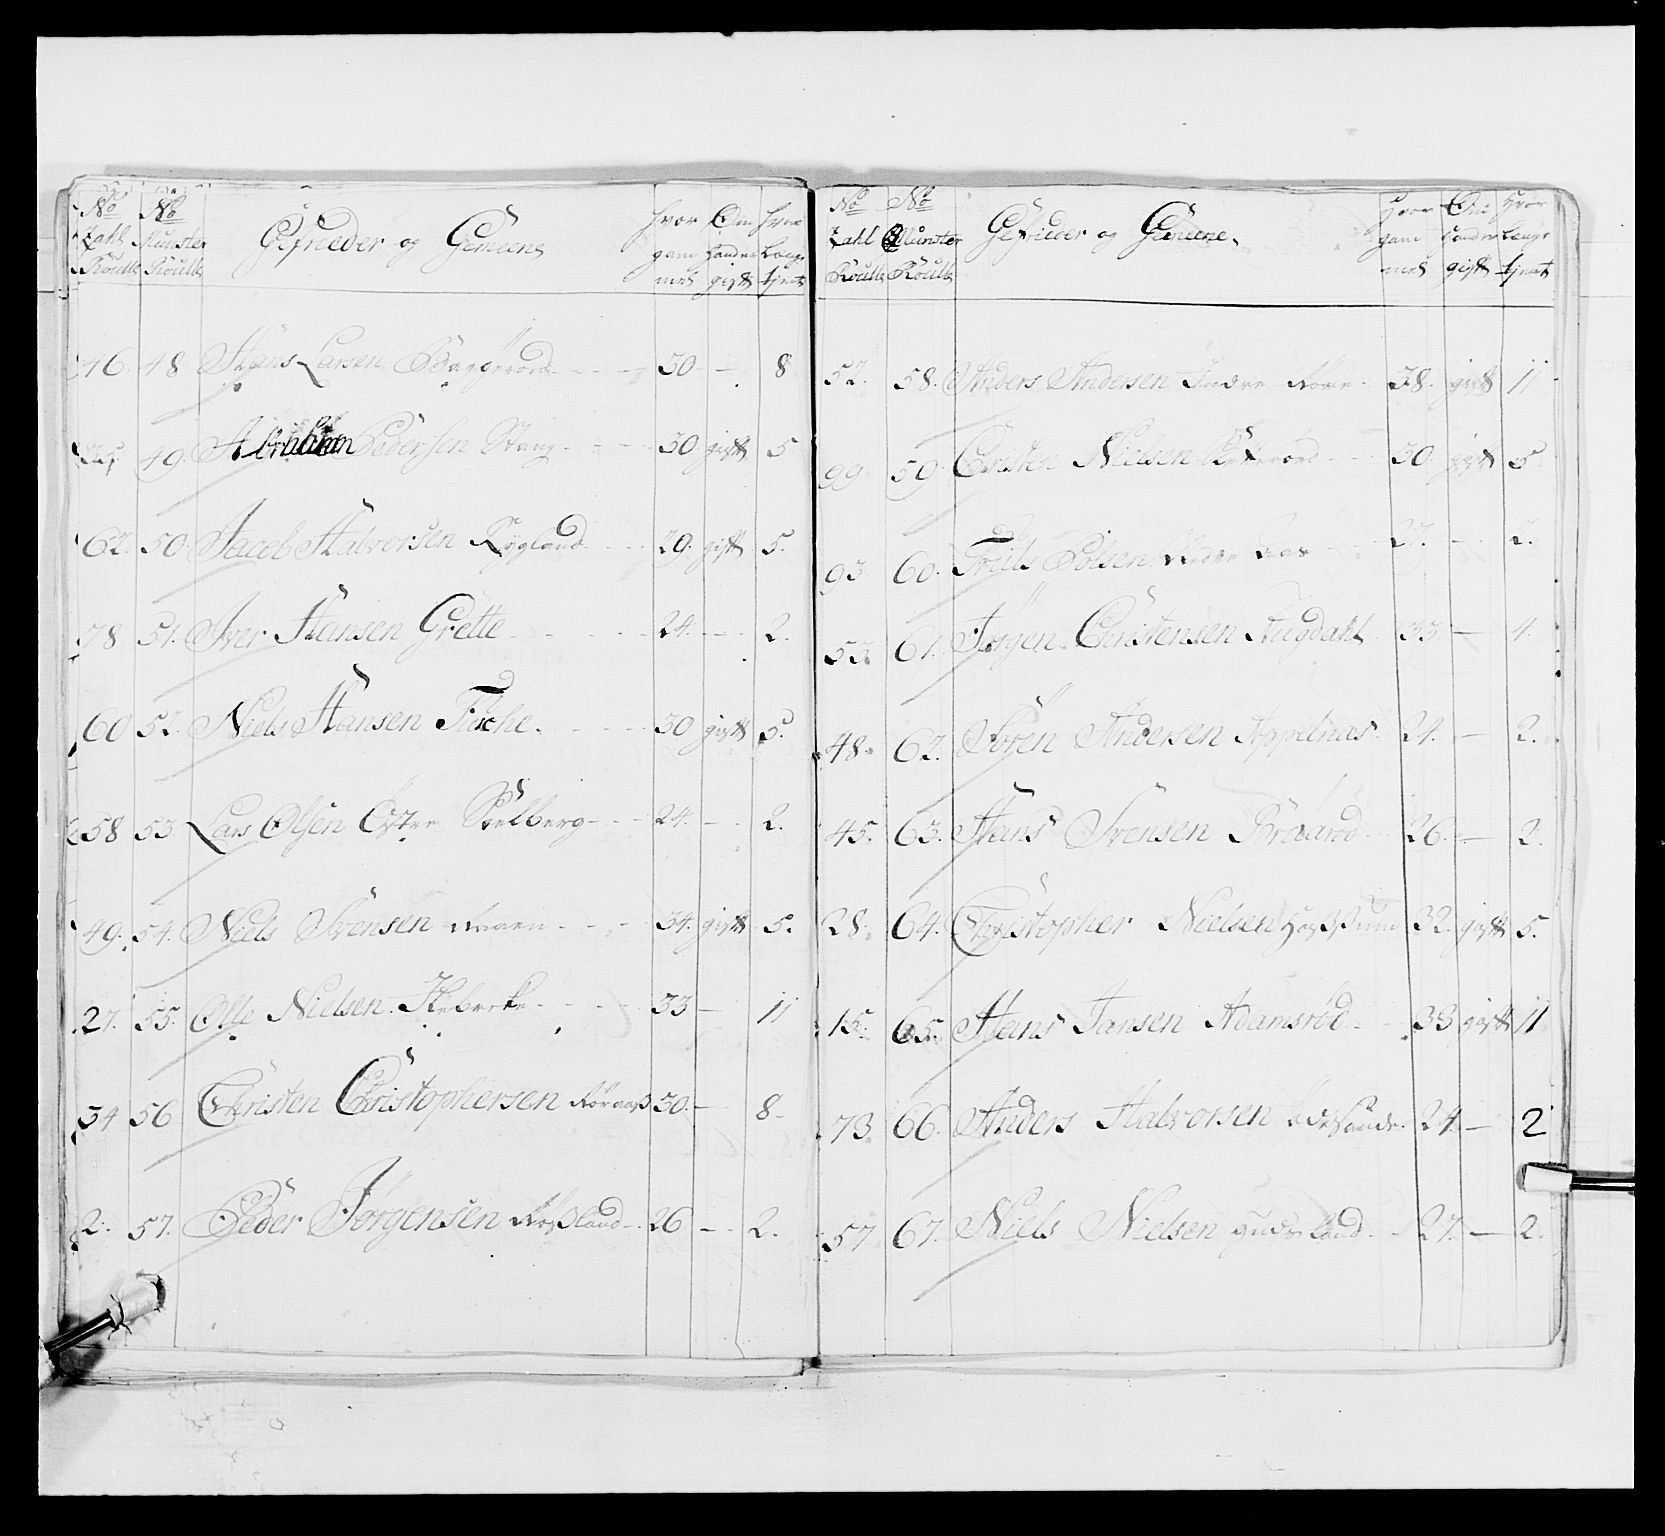 No Zahl Roulle No Munster Roulle Gefrieder og Gemeene hvor gam mel Om hånder gift hvor Længe tjent
46. 48 Hans Larsen Baggerød 30 - 8
49. Pedersen Stang 30 gift 5
62. 50. Jacob Halvorsen Rygland 29. gift 5.
78 51. Iver Hansen Grette 24. - 2.
60 52. Niels Hansen Fische. 30 gift 5.
58 53 Lars Olsen Østre Skelberg 24. - 2.
49. 54. Niels Svensen 34. gift 5.
27. 55. Olle Nielsen 33 - 11
34 56 Christen Christophersen 30. - 8
2. 57. Peder Jørgensen Røsland 26 - 2.
No Zahl Roulle No Munster Roulle Gefrieder og Gemeene. Hvor gam mel Om hånder gift Hvor Længe tjent
52. 58. Anders Andersen 38. gift 11
99 59. Christen Nielsen 30. gift 5
93 60. Friils Polsen 27. - 2.
53. 61. Jørgen Christensen Augdahl 33 - 4.
48. 62. Sören Andersen Appelnæs 24. - 2.
45. 63. Hans Svensen 26. - 2.
28. 64. Christopher Nielsen 32. gift 5.
15. 65. Hans Jansen Adamsrød 33 gift 11
73. 66. Anders Halvorsen 24. - 2
57 67. Niels Nielsen 27. - 2.